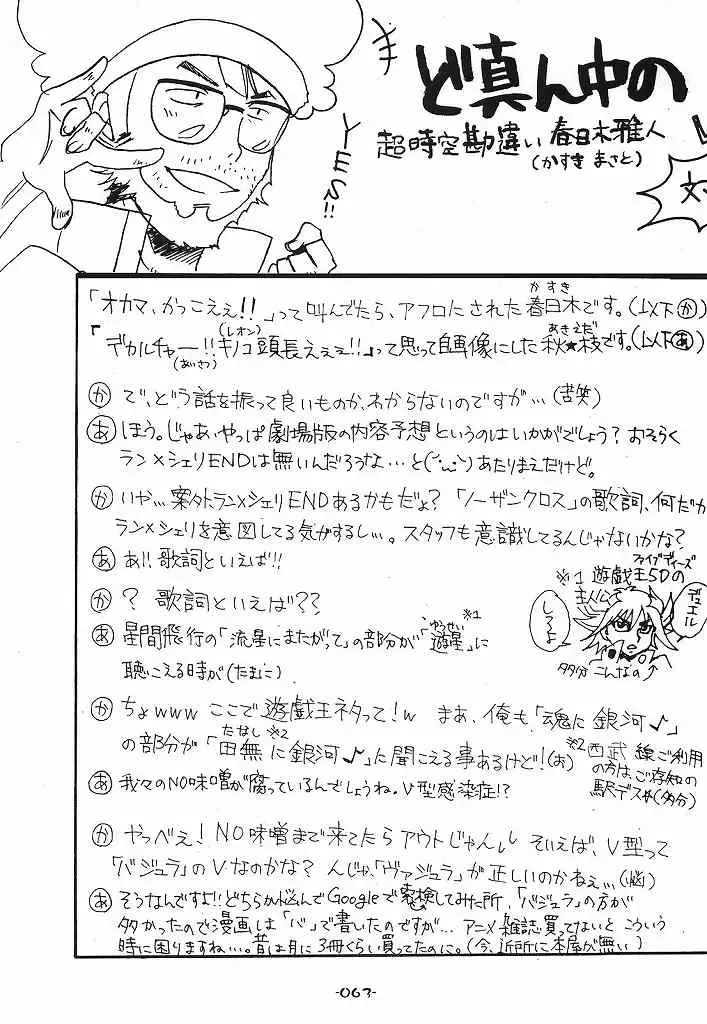 ど真ん中の
超時空勘違い 春日木雅人
(かすき まさと)
YES!!
「オカマ、かっこえぇ!!」って叫んでたら、アフロにされた春日木です。(以下か)
かすき
「デカルチャー!!キノコ頭長えぇぇ!!」って思って自画像にした秋★枝です。(以下あ)
(あいさつ)
(レオン)
あきえだ
か で、どう話を振って良いものか、わからないのですが…(苦笑)
あ ほう。じゃあ、やっぱ劇場版の内容予想というのはいかがでしょう?おそらく
ラン×シェリENDは無いんだろうな…と(´・ω・`)あたりまえだけど。
か いや…案外ラン×シェリENDあるかもだょ?「ノーザンクロス」の歌詞、何だか
ラン×シェリを意図してる気がするし…。スタッフも意識してるんじゃないかな?
あ あ!!歌詞といえば!!
か ? 歌詞といえば??
あ 星間飛行の「流星にまたがって」の部分が「遊星」に
ゆうせい
※1
聴こえる時が(たまに)
※1 遊戯王5Dの
ファイブディーズ
主人公
デュエル
しろよ
多分こんなの
か ちょwww ここで遊戯王ネタって!w まあ、俺も「魂に銀河♪」
の部分が「田無に銀河♪」に聞こえる事あるけど!(お)
たなし ※2
※2 西武線ご利用
の方はご存知の
駅デス★(多分)
あ 我々のNO味噌が腐っているんでしょうね。V型感染症!?
か やっべぇ!NO味噌まで来てたらアウトじゃんし そいえば、V型って
「バジュラ」のVなのかな? んじゃ、「ヴァジュラ」が正しいのかねぇ…(悩)
あ そうなんですよ!!どちらか悩んでGoogleで検索してみた所、「バジュラ」の方が
多かったので漫画は「バ」で書いたのですが… アニメ雑誌買ってないとこういう
時に困りますねぃ…。昔は月に3冊くらい買ってたのに。(今、近所に本屋が無い)
-063-